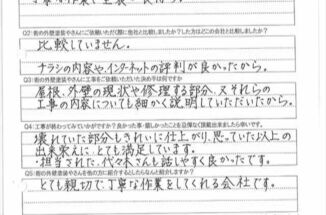 Q2:街の外壁塗装やさんにご依頼いただく際に他社と比較しましたか?した方はどこの会社と比較しましたか?
比較していません。
チラシの内容やインターネットの評判が良かったから。
Q3:街の外壁塗装やさんに工事を依頼いただいた決め手は何ですか
屋根、外壁の現状や修理する部分、又それらの
工事の内容についても細かく説明していただいたから。
Q4:工事が終わってみていかがですか?良かった事・嬉しかったことを忌憚なく頂戴出来ましたら幸いです。
壊れていた部分もきれいに仕上がり、思っていた以上の
出来栄えに、とても満足しています。
・担当された、代々木さんも話しやすく良かったです。
Q5:街の外壁塗装やさんを他の方に紹介するとしたらなんと紹介しますか?
とても親切で丁寧な作業をしてくれる会社です。